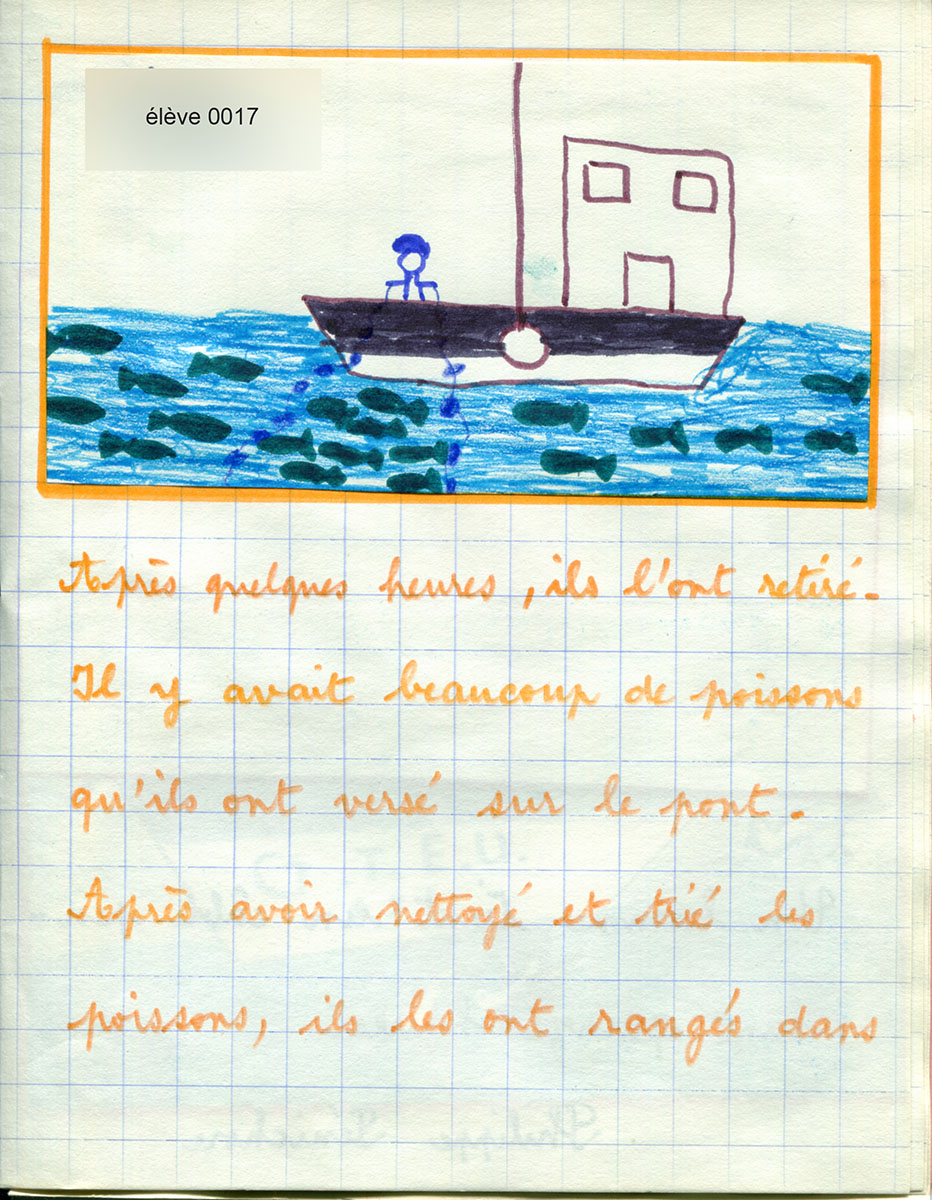 élève 0017
Après quelques heures, ils l'ont retiré.
Il y avait beaucoup de poissons
qu'ils ont versé sur le pont.
Après avoir nettoyé et trié les
poissons, ils les ont rangés dans